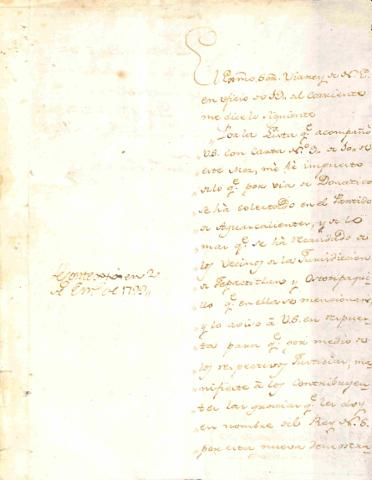 El Exmo. Sor. Virrey de N. E.
en oficio de 19. del corriente
me dice lo siguiente
Por la Lista q.e acompaño
V.S. con Carta N.o 9. de 10. de
este Mes, me hè impuesto
de lo q.e por via de Donativo
se hà colectado en el Partido
de Aguascalientes, y de lo
mas q.e se hà recaudado de
los Vecinos de la Jurisdiccion
de
q.e en ella se mencionan,
y lo aviso à V.S. en respues-
ta para q.e por medio de
los respectivos Justicias, ma-
nifieste à los Contribuyen-
tes las gracias q.e les doy
en nombre del Rey N. S.
por esta nueva demostra-
en 2
de En.o de 1799